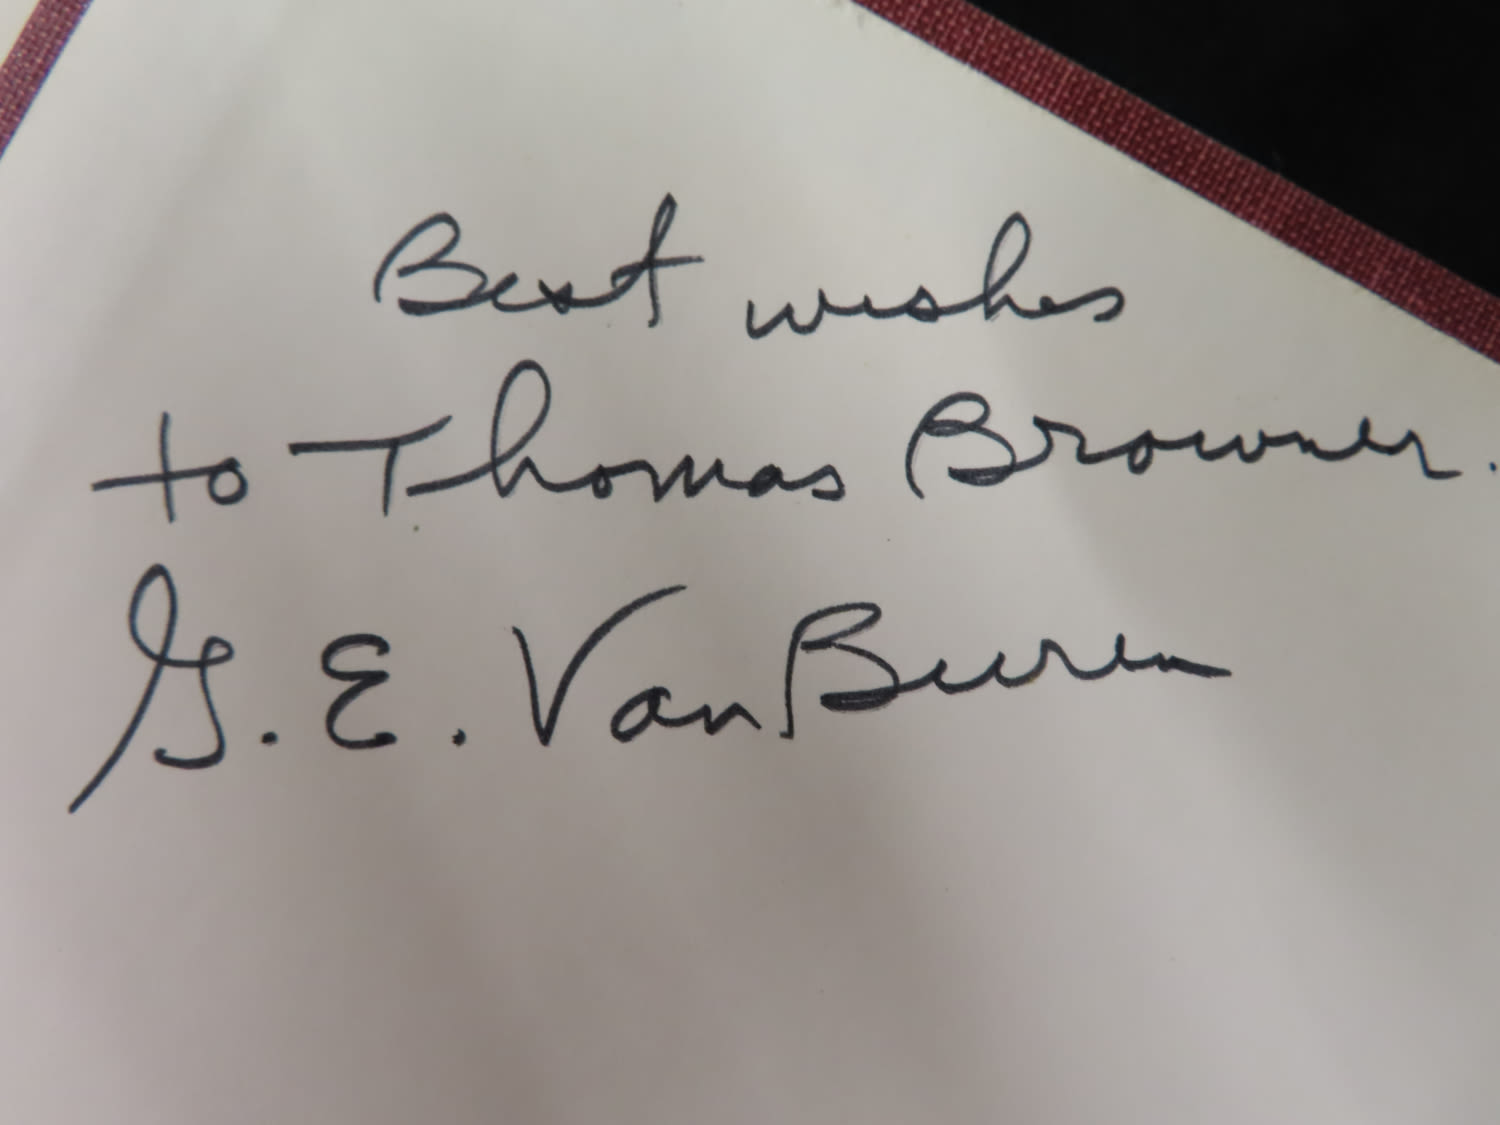 Best wishes
to Thomas Browner.
G. E. Van Buren